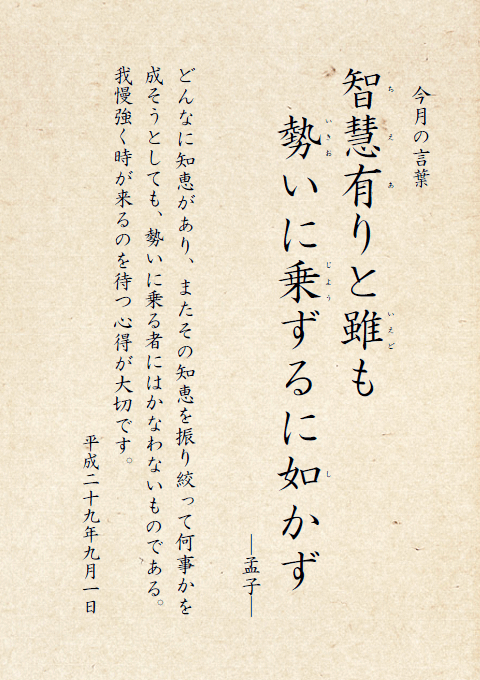 今月の言葉
智慧有りと雖も
勢いに乗ずるに如かず
―孟子―
どんなに知恵があり、またその知恵を振り絞って何事かを
成そうとしても、勢いに乗る者にはかなわないものである。
我慢強く時が来るのを待つ心得が大切です。
平成二十九年九月一日